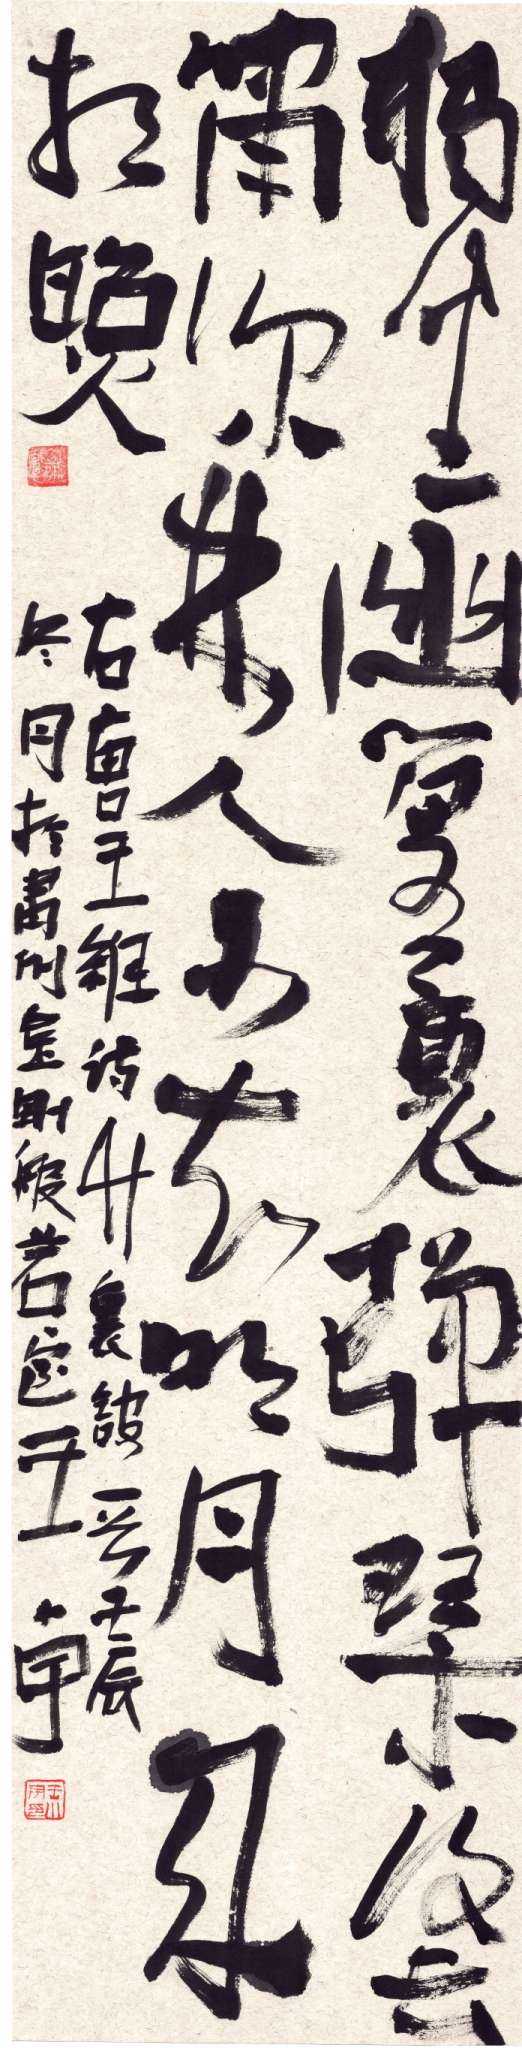 獨坐幽篁裏彈琴復長
嘯深林人不知明月来
相照
右唐王維诗竹裏館一首壬辰
冬月於肅州金剛般若